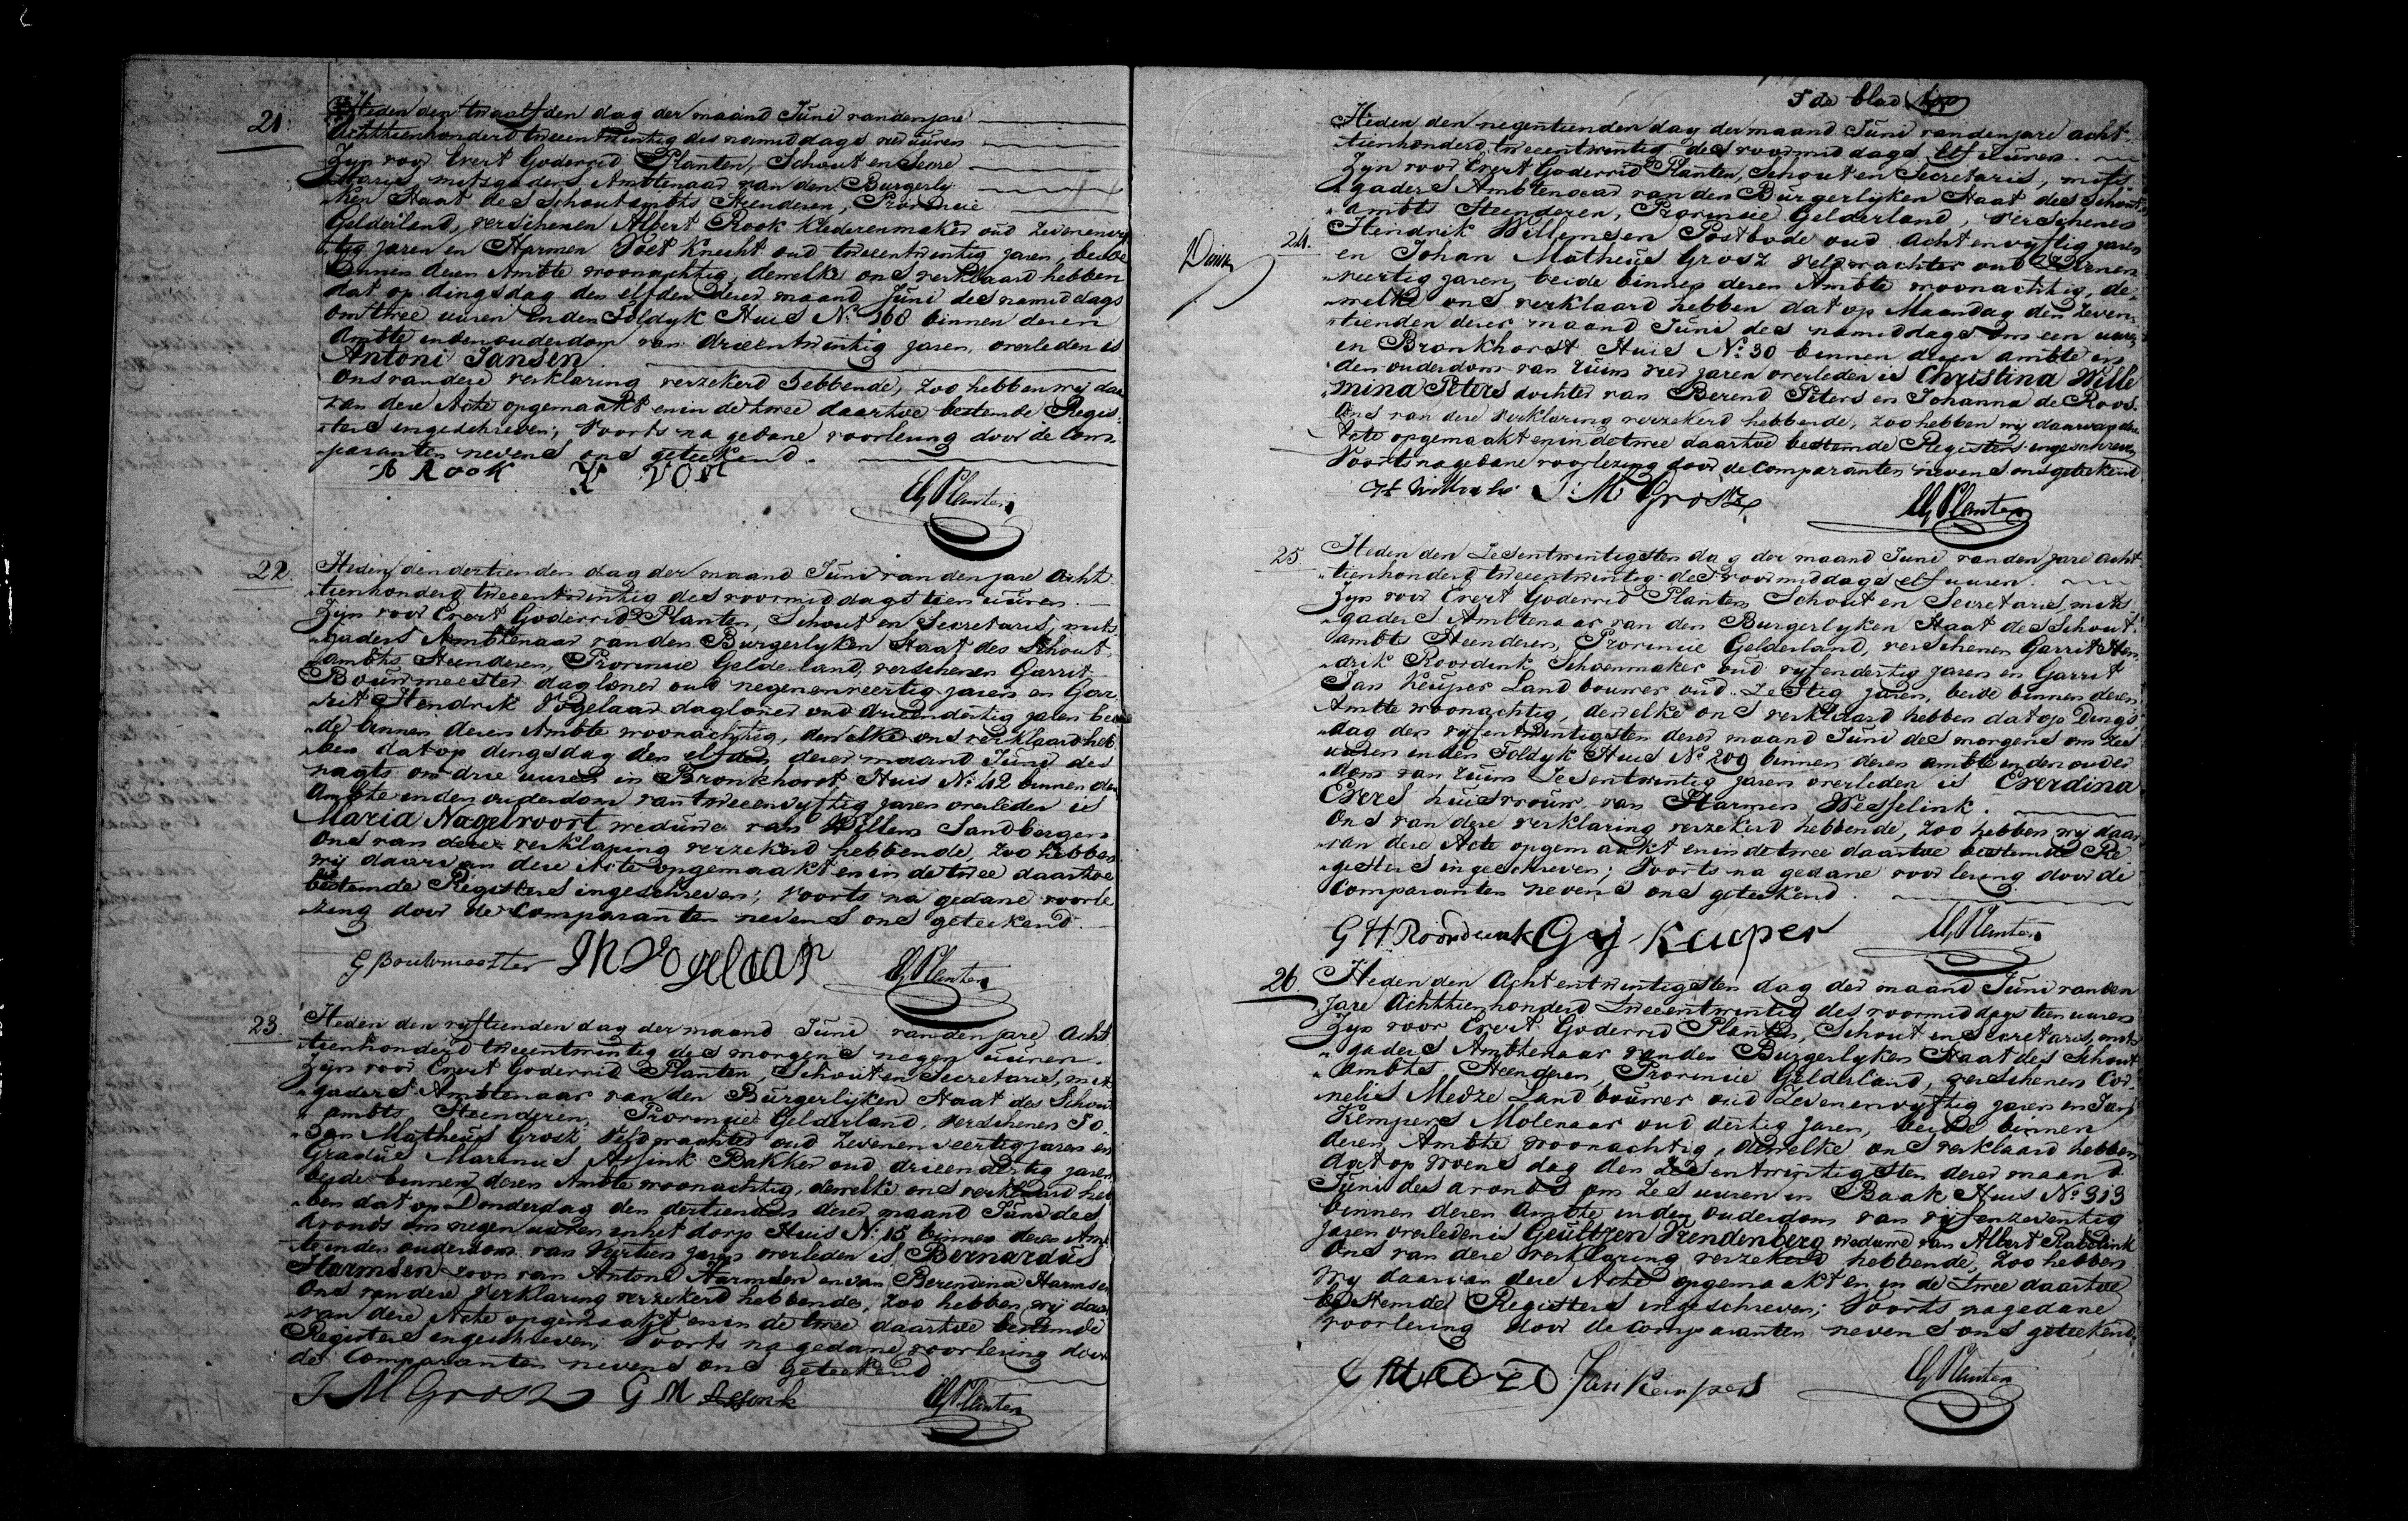 21.
Heden den twaalfden dag der maand Juni van den jare
Achttienhonderd tweeentwintig des namiddags vier uuren
Zyn voor Evert Goderrid Planten, Schout en Secre
tarys mitsgaders Ambtenaar van den Burgerly
ken Staat des Schoutambts Steenderen, Provincie
Gelderland, verschenen Albert Rook kledermaker oud zevenenvyf
tig jaren en Harmen Voet Knecht oud tweeentwintig jaren, beide
binnen deren Ambte woonachtig, dewelke ons verklaard hebben
dat op dingsdag den elfden derer maand Juni des namiddags
om twee uuren in den Toldyk Huis No. 168 binnen deren
Ambte in den ouderdom van drieentwintig jaren, overleden is
Antoni Jansen
Ons van dere verklaring verzekerd hebbende, zoo hebben wy daar
van dere Acte opgemaakt en in de twee daartoe bestemde Regis
ters ingeschreven; Voorts na gedane voorlezing door de Com
paranten nevens ons geteekend.
A Rook
EG Planten
22.
Heden den dertienden dag der maand Juni van den jare Acht
tienhonderd tweeentwintig des voormiddags tien uuren
Zyn voor Evert Goderrid Planten, Schout en Secretaris, mits
gaders Ambtenaar van den Burgerlyken Staat des Schout
ambts Steenderen, Provincie Gelderland, verschenen Gerrit
Bouwmeester dagloner oud negenenveertig jaren en Ger
rit Hendrik Vogelaar dagloner oud drieendertig jaren bei
de binnen deren Ambte woonachtig, dewelke ons verklaard heb
ben dat op dingsdag den elfden derer maand Juni des
nagts om drie uuren in Bronkhorst Huis No. 42 binnen deren
Ambte in den ouderdom van tweeenvyftig jaren overleden is
Maria Nagelvoort weduwe van Willem Sandbergen
Ons van dere verklaring verzekerd hebbende, zoo hebben
wij daarvan dere Acte opgemaakt en in de twee daartoe
bestemde Registers ingeschreven; Voorts na gedane voorle
zing door de Comparanten nevens ons geteekend.
G Bouwmeester GH Vogelaar EG Planten
23.
Heden den vyftienden dag der maand Juni van den jare Acht
tienhonderd tweeentwintig des morgens negen uuren.
Zyn voor Evert Goderrid Planten, Schout en Secretaris, mits
gaders Ambtenaar van den Burgerlyken Staat des Schout
ambts Steenderen, Provincie Gelderland, verschenen Jo
han Matheus Grosz Veldwachter oud zevenenveertig jaren en
Gradus Marinus Assink Bakker oud drieendertig jaren
beide binnen deren Ambte woonachtig, dewelke ons verklaard heb
ben dat op Donderdag den dertienden derer maand Juni des
avonds om negen uuren in het dorp Huis No. 15 binnen deren Amb
te in den ouderdom van Veertien jaren overleden is Bernardus
Harmsen zoon van Antoni Harmsen en van Berendina Harmsen
Ons van dere verklaring verzekerd hebbende, zoo hebben wij daar
van dere Acte opgemaakt en in de twee daartoe bestemde
Registers ingeschreven; Voorts na gedane voorlezing door
de Comparanten nevens ons geteekend
J M Grosz G M Assink EG Planten
5de blad
24.
Heden den negentienden dag der maand Juni van den jare acht
tienhonderd tweeentwintig des voormiddags elf uuren.
Zyn voor Evert Goderrid Planten, Schout en Secretaris, mits
gaders Ambtenaar van den Burgerlyken Staat des Schout
ambts Steenderen, Provincie Gelderland, verschenen
Hendrik Willemsen Postbode oud achtenvyftig jaren
en Johan Matheus Grosz veldwachter oud zevenen
veertig jaren, beide binnen deren Ambte woonachtig, de
welke ons verklaard hebben dat op Maandag den zeven
tienden derer maand Juni des namiddags om een uur
in Bronkhorst Huis No. 30 binnen deren ambte in
den ouderdom van ruim vier jaren overleden is Christina Wille
mina Peters dochter van Berend Peters en Johanna de Roos.
Ons van dere verklaring verzekerd hebbende, zoo hebben wij daarvan dere
Acte opgemaakt en in de twee daartoe bestemde Registers ingeschreven
Voorts na gedane voorlezing door de Comparanten nevens ons geteekend
J: M Grosz EG Planten
25
Heden den Zesentwintigsten dag der maand Juni van den jare acht
tienhonderd tweeentwintig des voormiddags elf uuren.
Zyn voor Evert Goderrid Planten Schout en Secretaris, mits
gaders Ambtenaar van den Burgerlyken Staat des Schout
ambts Steenderen, Provincie Gelderland, verschenen Garrit Hen
drik Roordink Schoenmaker oud vyfendertig jaren en Garrit
Jan Keuper Landbouwer oud Zestig jaren, beide binnen deren
Ambte woonachtig, dewelke ons verklaard hebben dat op Dings
dag den vyfentwintigsten derer maand Juni des morgens om zes
uuren in den Toldyk Huis No. 209 binnen deren ambte in den ouder
dom van ruim Zesentwintig jaren overleden is Everdina
Evers huisvrouw van Harmen Wesselink.
Ons van dere verklaring verzekerd hebbende, zoo hebben wij daar
van dere Acte opgemaakt en in de twee daartoe bestemde Re
gisters ingeschreven; Voorts na gedane voorlezing door de
Comparanten nevens ons geteekend.
G H Roordink GJ Keuper EG Planten
26.
Heden den Achtentwintigsten dag der maand Juni van den
Jare Achttienhonderd Tweeentwintig des voormiddags tien uuren
Zyn voor Evert Goderrid Planten, Schout en Secretaris, mits
gaders Ambtenaar van den Burgerlyken Staat des Schout
Ambts Steenderen, Provincie Gelderland, verschenen Cor
nelis Medze Landbouwer oud Zevenenvyftig jaren en Jan
Kempers Molenaar oud dertig jaren, beide binnen
deren Ambte woonachtig, dewelke ons verklaard hebben
dat op woensdag den Zesentwintigsten derer maand
Juni des avonds om zes uuren in Baak Huis No. 313
binnen deren Ambte in den ouderdom van vijfenzeventig
jaren overleden is Geultjen Vrendenberg weduwe van Albert Rabelink
Ons van dere verklaring verzekerd hebbende, zoo hebben
wy daarvan dere Acte opgemaakt en in de twee daartoe
bestemde Registers ingeschreven; Voorts na gedane
voorlezing door de Comparanten nevens ons geteekend.
Jan Kempers EG Planten